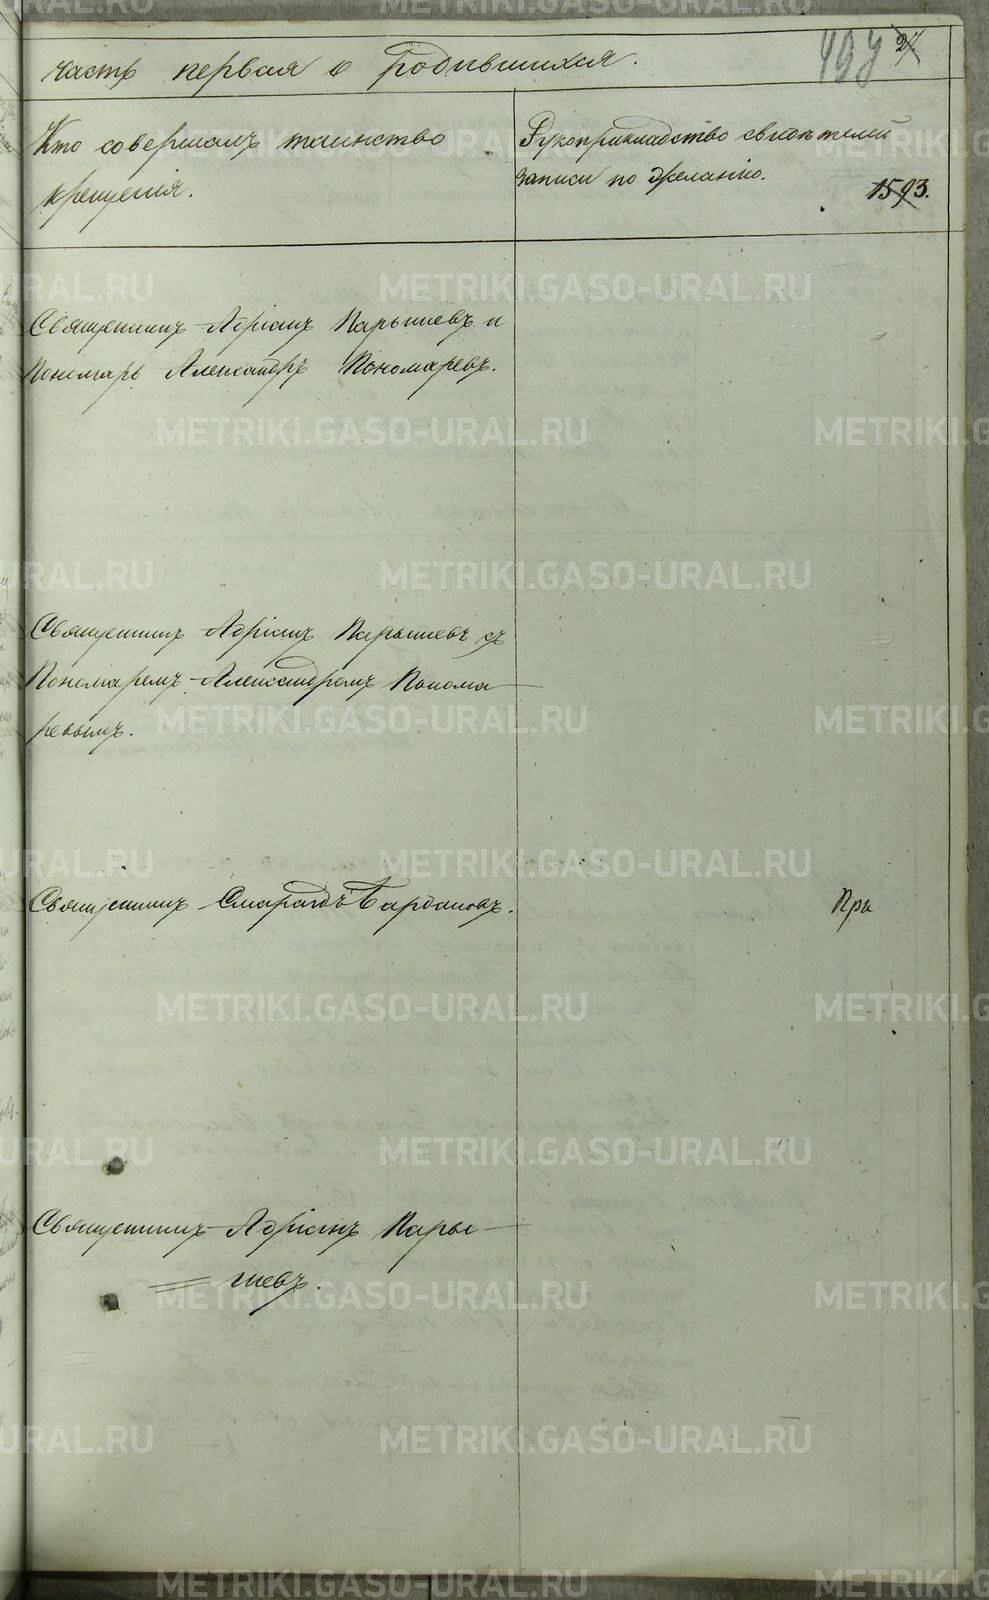 часть первая о родившихся.
497 27
Кто совершалъ таинство
крещенія.
Рукоприкладство свидѣтелей
записи по желанію.
1593.
Священникъ Адріанъ Парышевъ и
Пономарь Александръ Пономаревъ.
Священникъ Адріанъ Парышевъ съ
Пономаремъ Александромъ Понома
ревымъ.
Священникъ Смарагдъ Бардановъ.
При
Священникъ Адріанъ Пары
шевъ.
METRIKI.GASO-URAL.RU